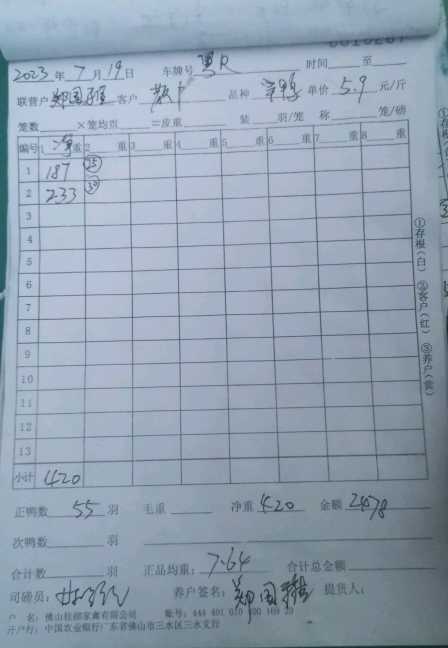 2023 年 7 月 19 日 车牌号 粤R 时间 至
联营户 郑国强 客户 散户 品种 单价 5.9 元/斤
笼数 ×笼均重 =皮重 装 羽/笼 称 笼/磅
编号 1 净重 2 重 3 重 4 重 5 重 6 重 7 重 8 重
1 187 25
2 233 30
3
4
5
6
7
8
9
10
11
12
13
小计 420
正鸭数 55 羽 毛重 净重 420 金额 2478
次鸭数 羽
合计数 羽 正品均重: 7.64 合计总金额
司磅员: 养户签名: 郑国强 提货人:
户 名: 佛山桂柳家禽有限公司 账号: 444 401 010 400 169 39
开户行: 中国农业银行广东省佛山市三水区三水支行
①存根(白) ②客户(红) ③养户(黄)